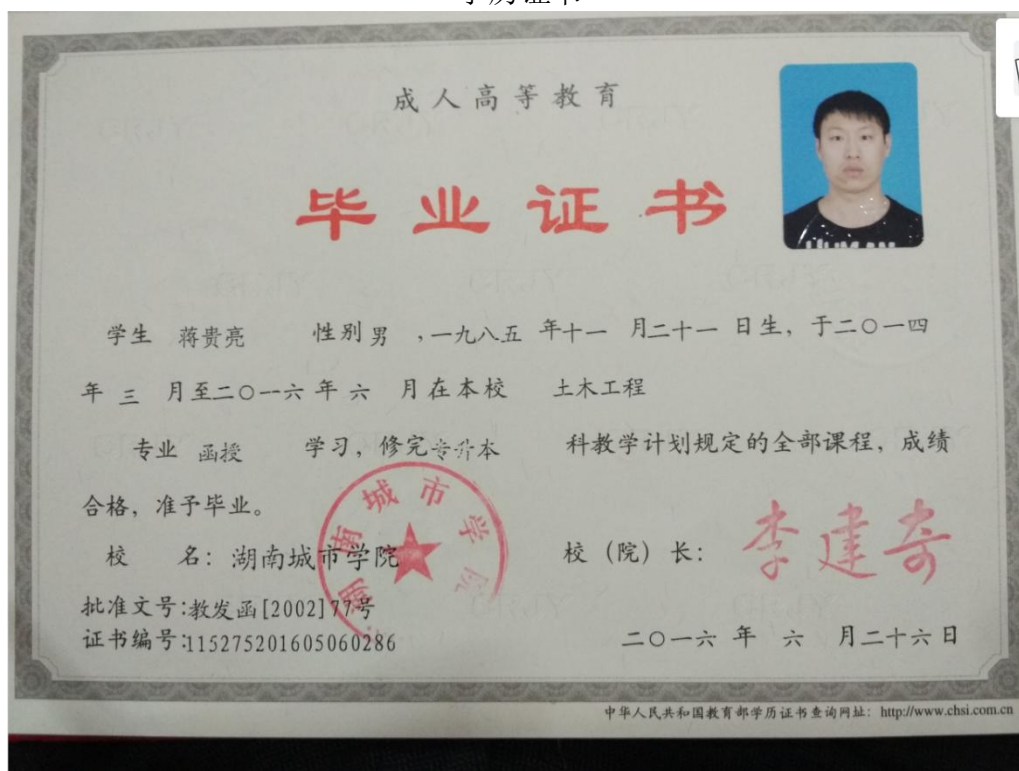 学历证书
成人高等教育
毕业证书
HUMAN
学生 蒋贵亮 性别男 ，一九八五 年十一 月二十一 日生，于二〇一四
年 三 月至二〇一六 年 六 月在本校 土木工程
专业 函授 学习，修完专升本 科教学计划规定的全部课程，成绩
合格，准予毕业。
湖南城市学院
校 名：湖南城市学院 校（院）长：李建奇
批准文号:教发函[2002]77号
证书编号:115275201605060286 二〇一六 年 六 月二十六日
中华人民共和国教育部学历证书查询网址：http://www.chsi.com.cn